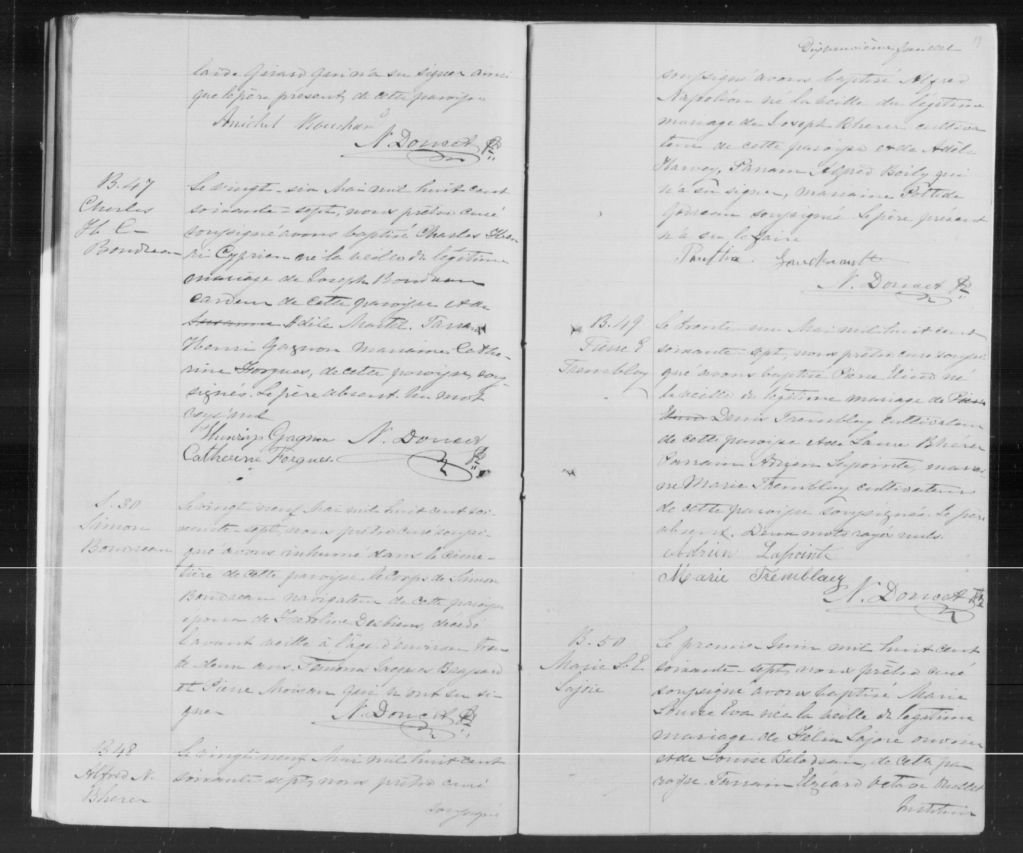 lande Gérard qui n'a su signer ainsi
que le père présent, de cette paroisse
N. Doucet Ptre
B. 47
Charles
H. C.
Boudreau
Le vingt-six Mai mil huit cent
soixante-sept, nous prêtre curé
soussigné avons baptisé Charles Hen-
ri Cyprien né la veille du légitime
mariage de Joseph Boudreau
de cette paroisse et de
Adèle Martel. Parrain
Henri Gagnon marraine Cathe-
rine Forgues, de cette paroisse, sous-
signés. Le père absent. Un mot
rayé nul
Henry Gagnon N. Doucet Ptre
Catherine Forgues
S. 30
Simon
Boudreau
Le vingt neuf Mai mil huit cent soi-
xante sept, nous prêtre curé soussi-
gné avons inhumé dans le cime-
tière de cette paroisse, le corps de Simon
Boudreau navigateur de cette paroisse
époux de décédé
l'avant veille à l'âge d'environ tren-
te deux ans. Témoins Jacques
et Pierre Moisan qui n'ont su si-
gner N. Doucet Ptre
B. 48
Alfred N.
Bherer
Le vingt neuf Mai mil huit cent
soixante sept, nous prêtre curé
soussigné
Dix neuvième feuillet
soussigné avons baptisé Alfred
Napoléon né la veille du légitime
mariage de Joseph Bherer cultiva-
teur de cette paroisse et de Adèle
Harvey, Parrain Alfred Boily qui
n'a su signer, marraine
Godreau soussigné. Le père présent
n'a su le faire
N. Doucet Ptre
B. 49
Pierre E
Tremblay
Le trente un Mai mil huit cent
soixante-sept, nous prêtre curé soussi-
gné avons baptisé Pierre né
la veille du légitime mariage de
Denis Tremblay cultivateur
de cette paroisse et de Bhérer
Parrain Adrien Lapointe, marrai-
ne Marie Tremblay cultivateurs
de cette paroisse soussignés. Le père
absent. Deux mots rayés nuls.
Adrien Lapointe
Marie Tremblay
N. Doucet Ptre
B. 50
Marie L. E
Lajoie
Le premier Juin mil huit cent
soixante-sept, nous prêtre curé
soussigné avons baptisé Marie
Louise Eva née la veille du légitime
mariage de Félix Lajoie ouvrier
et de Louise de cette pa-
roisse. Parrain Elzéard Octave Ouellet
Instituteur